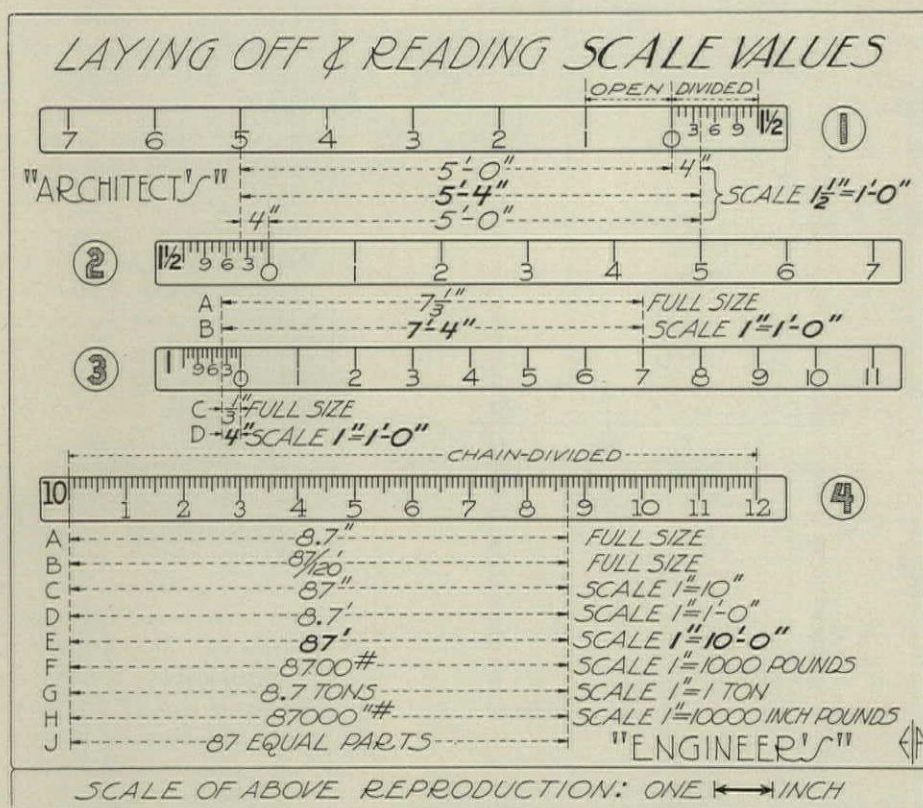 LAYING OFF & READING SCALE VALUES
OPEN DIVIDED
7 6 5 4 3 2 1 0 3 6 9 1½ 1
5'-0" 4"
"ARCHITECT'S" 5'-4" SCALE 1½"=1'-0"
4" 5'-0"
2 1½ 9 6 3 0 1 2 3 4 5 6 7
A 7⅓" FULL SIZE
B 7'-4" SCALE 1"=1'-0"
3 1 9 6 3 0 1 2 3 4 5 6 7 8 9 10 11
C ⅓" FULL SIZE
D 4" SCALE 1"=1'-0"
CHAIN-DIVIDED
10 1 2 3 4 5 6 7 8 9 10 11 12 4
A 8.7" FULL SIZE
B 87/120' FULL SIZE
C 87" SCALE 1"=10"
D 8.7' SCALE 1"=1'-0"
E 87' SCALE 1"=10'-0"
F 8700# SCALE 1"=1000 POUNDS
G 8.7 TONS SCALE 1"=1 TON
H 87000"# SCALE 1"=10000 INCH POUNDS
J 87 EQUAL PARTS "ENGINEER'S"
SCALE OF ABOVE REPRODUCTION: ONE INCH